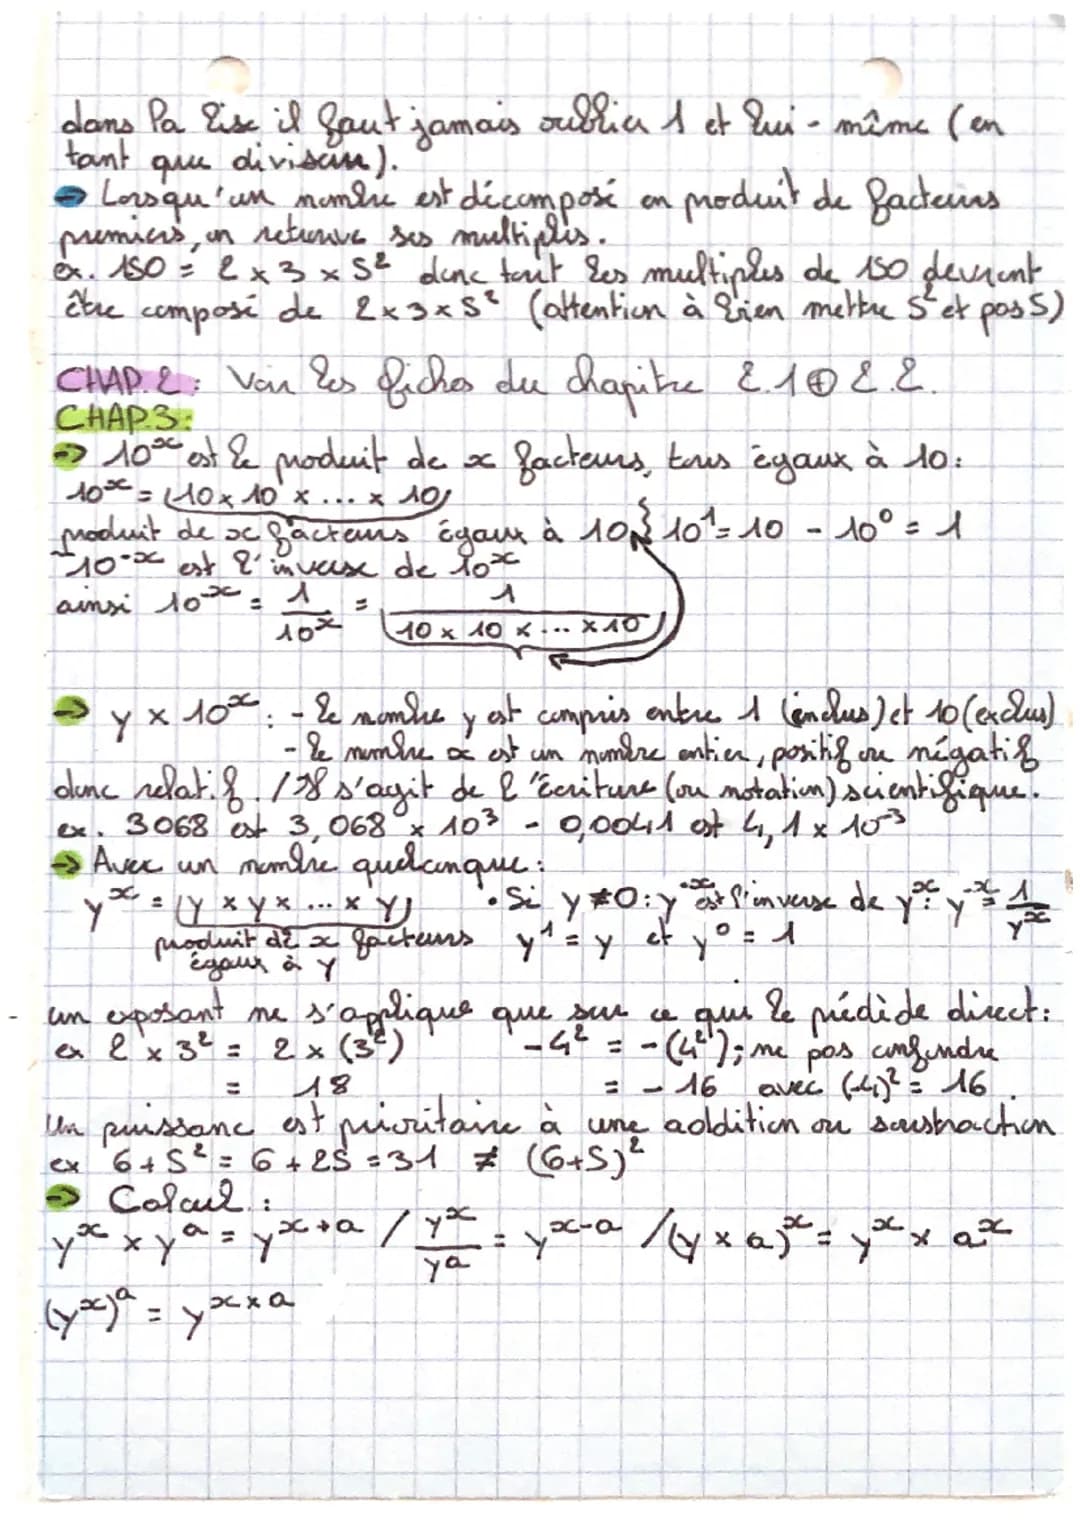 dans la lise il faut jamais oublier 1 et lui-même (en
tant que diviseur).
→ Lorsqu'un nombre est décomposé en produit de facteurs
premiers, on retrouve ses multiples.
ex. 150 = 2 × 3 × 5² donc tout les multiples de 150 devront
être composé de 2×3×5² (attention à bien mettre 5² et pas 5)
CHAP. 2 : Voir les fiches du chapitre 2.1 ⊕ 2.2.
CHAP.3:
→ 10ˣ est le produit de x facteurs, tous égaux à 10:
10ˣ = 10 × 10 × ... × 10
produit de x facteurs égaux à 10 } 10¹ = 10 - 10⁰ = 1
10⁻ˣ est l'inverse de 10ˣ
ainsi 10⁻ˣ = 1/10ˣ = 1/(10 × 10 × ... × 10)
→ y × 10ˣ : - le nombre y est compris entre 1 (inclus) et 10 (exclus)
- le nombre x est un nombre entier, positif ou négatif
donc relatif. / Il s'agit de l'écriture (ou notation) scientifique.
ex. 3068 est 3,068 × 10³ - 0,0041 est 4,1 × 10⁻³
→ Avec un nombre quelconque :
yˣ = y × y × ... × y • Si y ≠ 0 : y⁻ˣ est l'inverse de yˣ : y⁻ˣ = 1/yˣ
produit de x facteurs y¹ = y et y⁰ = 1
égaux à y
un exposant ne s'applique que sur ce qui le prédède direct :
ex 2 × 3² = 2 × (3²) -4² = -(4²) ; ne pas confondre
= 18 = -16 avec (-4)² = 16.
Un puissanc est prioritaire à une addition ou soustraction
ex 6 + 5² = 6 + 25 = 31 ≠ (6+5)²
→ Calcul :
yˣ × yᵃ = yˣ⁺ᵃ / yˣ/yᵃ = yˣ⁻ᵃ / (y × a)ˣ = yˣ × aˣ
(yˣ)ᵃ = yˣ ˣ ᵃ